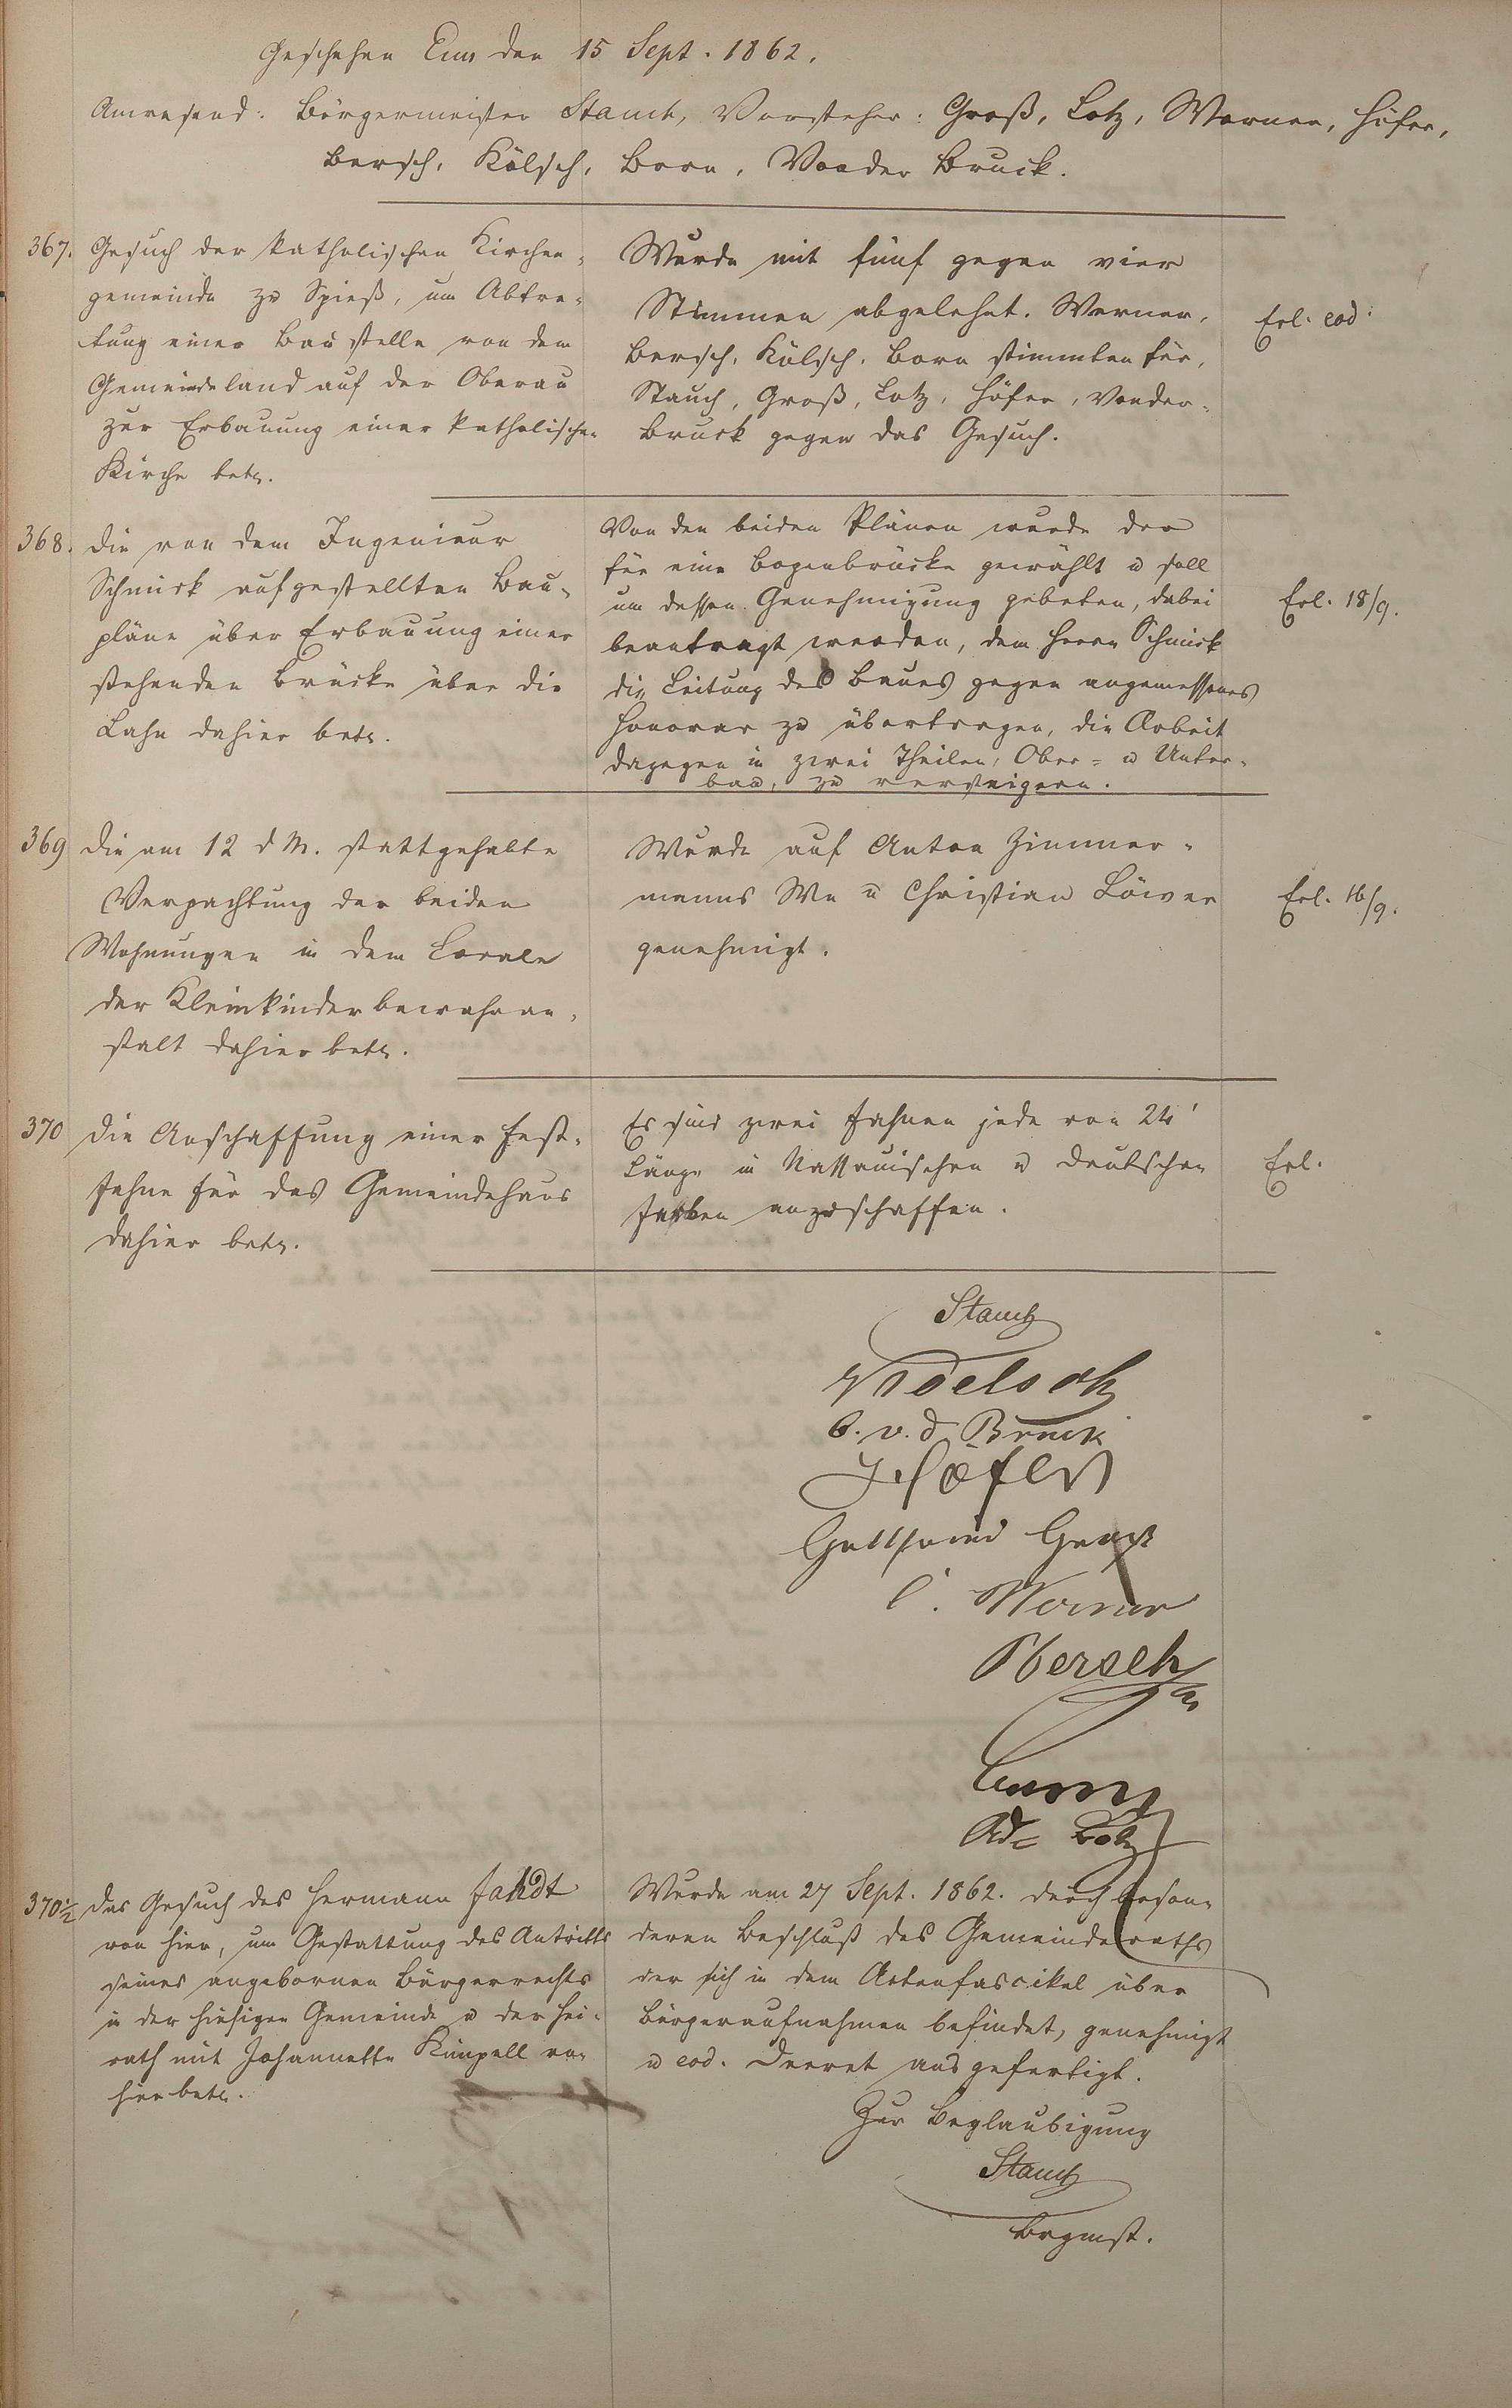 Geschehen Ems den 15 Sept. 1862.
Anwesend: Bürgermeister Stauch, Vorsteher: Groß, Lotz, Werner, Höfer,
Bersch, Kölsch, Born, Vonder Bruck.
367. Gesuch der katholischen Kirchen-
gemeinde zu Spieß, um Abtre-
tung einer Baustelle von dem
Gemeindeland auf der Oberau
zur Erbauung einer katholischen
Kirche betr.
Wurde mit fünf gegen vier
Stimmen abgelehnt. Werner,
Bersch, Kölsch, Born stimmten für,
Stauch, Groß, Lotz, Höfer, Vonder-
Bruck gegen das Gesuch.
Erl. eod.
368. Die von dem Ingenieur
Schmick aufgestellten Bau-
pläne über Erbauung einer
stehenden Brücke über die
Lahn dahier betr.
Von den beiden Plänen wurde der
für eine Bogenbrücke gewählt u soll
um dessen Genehmigung gebeten, dabei
beantragt werden, dem Herrn Schmick
die Leitung des Baues gegen angemessenes
Honorar zu übertragen, die Arbeit
dagegen in zwei Theilen, Ober- u Unter-
bau, zu versteigern.
Erl. 18/9.
369 Die am 12 d M. stattgehabte
Verpachtung der beiden
Wohnungen in dem Locale
der Kleinkinderbewahran-
stalt dahier betr.
Wurde auf Anton Zimmer-
manns We u Christian Löwer
genehmigt.
Erl. 16/9.
370 Die Anschaffung einer Fest-
fahne für das Gemeindehaus
dahier betr.
Es sind zwei Fahnen jede von 24'
Länge in Nassauischen u deutschen
Farben anzuschaffen.
Erl.
Stauch
Kölsch
C. v. d. Bruck
J Höfer
Gottfried Groß
C. Werner
P Bersch
Born
Ad. Lotz
370 1/2 Das Gesuch des Hermann Fahdt
von hier, um Gestattung des Antritts
seines angebornen Bürgerrechts
in der hiesigen Gemeinde u der Hei-
rath mit Johannette Kimpell von
hier betr.
Wurde am 27 Sept. 1862. durch beson-
deren Beschluß des Gemeinderaths
der sich in dem Actenfascikel über
Bürgeraufnahmen befindet, genehmigt
u eod. Decret ausgefertigt.
Zur Beglaubigung
Stauch
Brgmst.